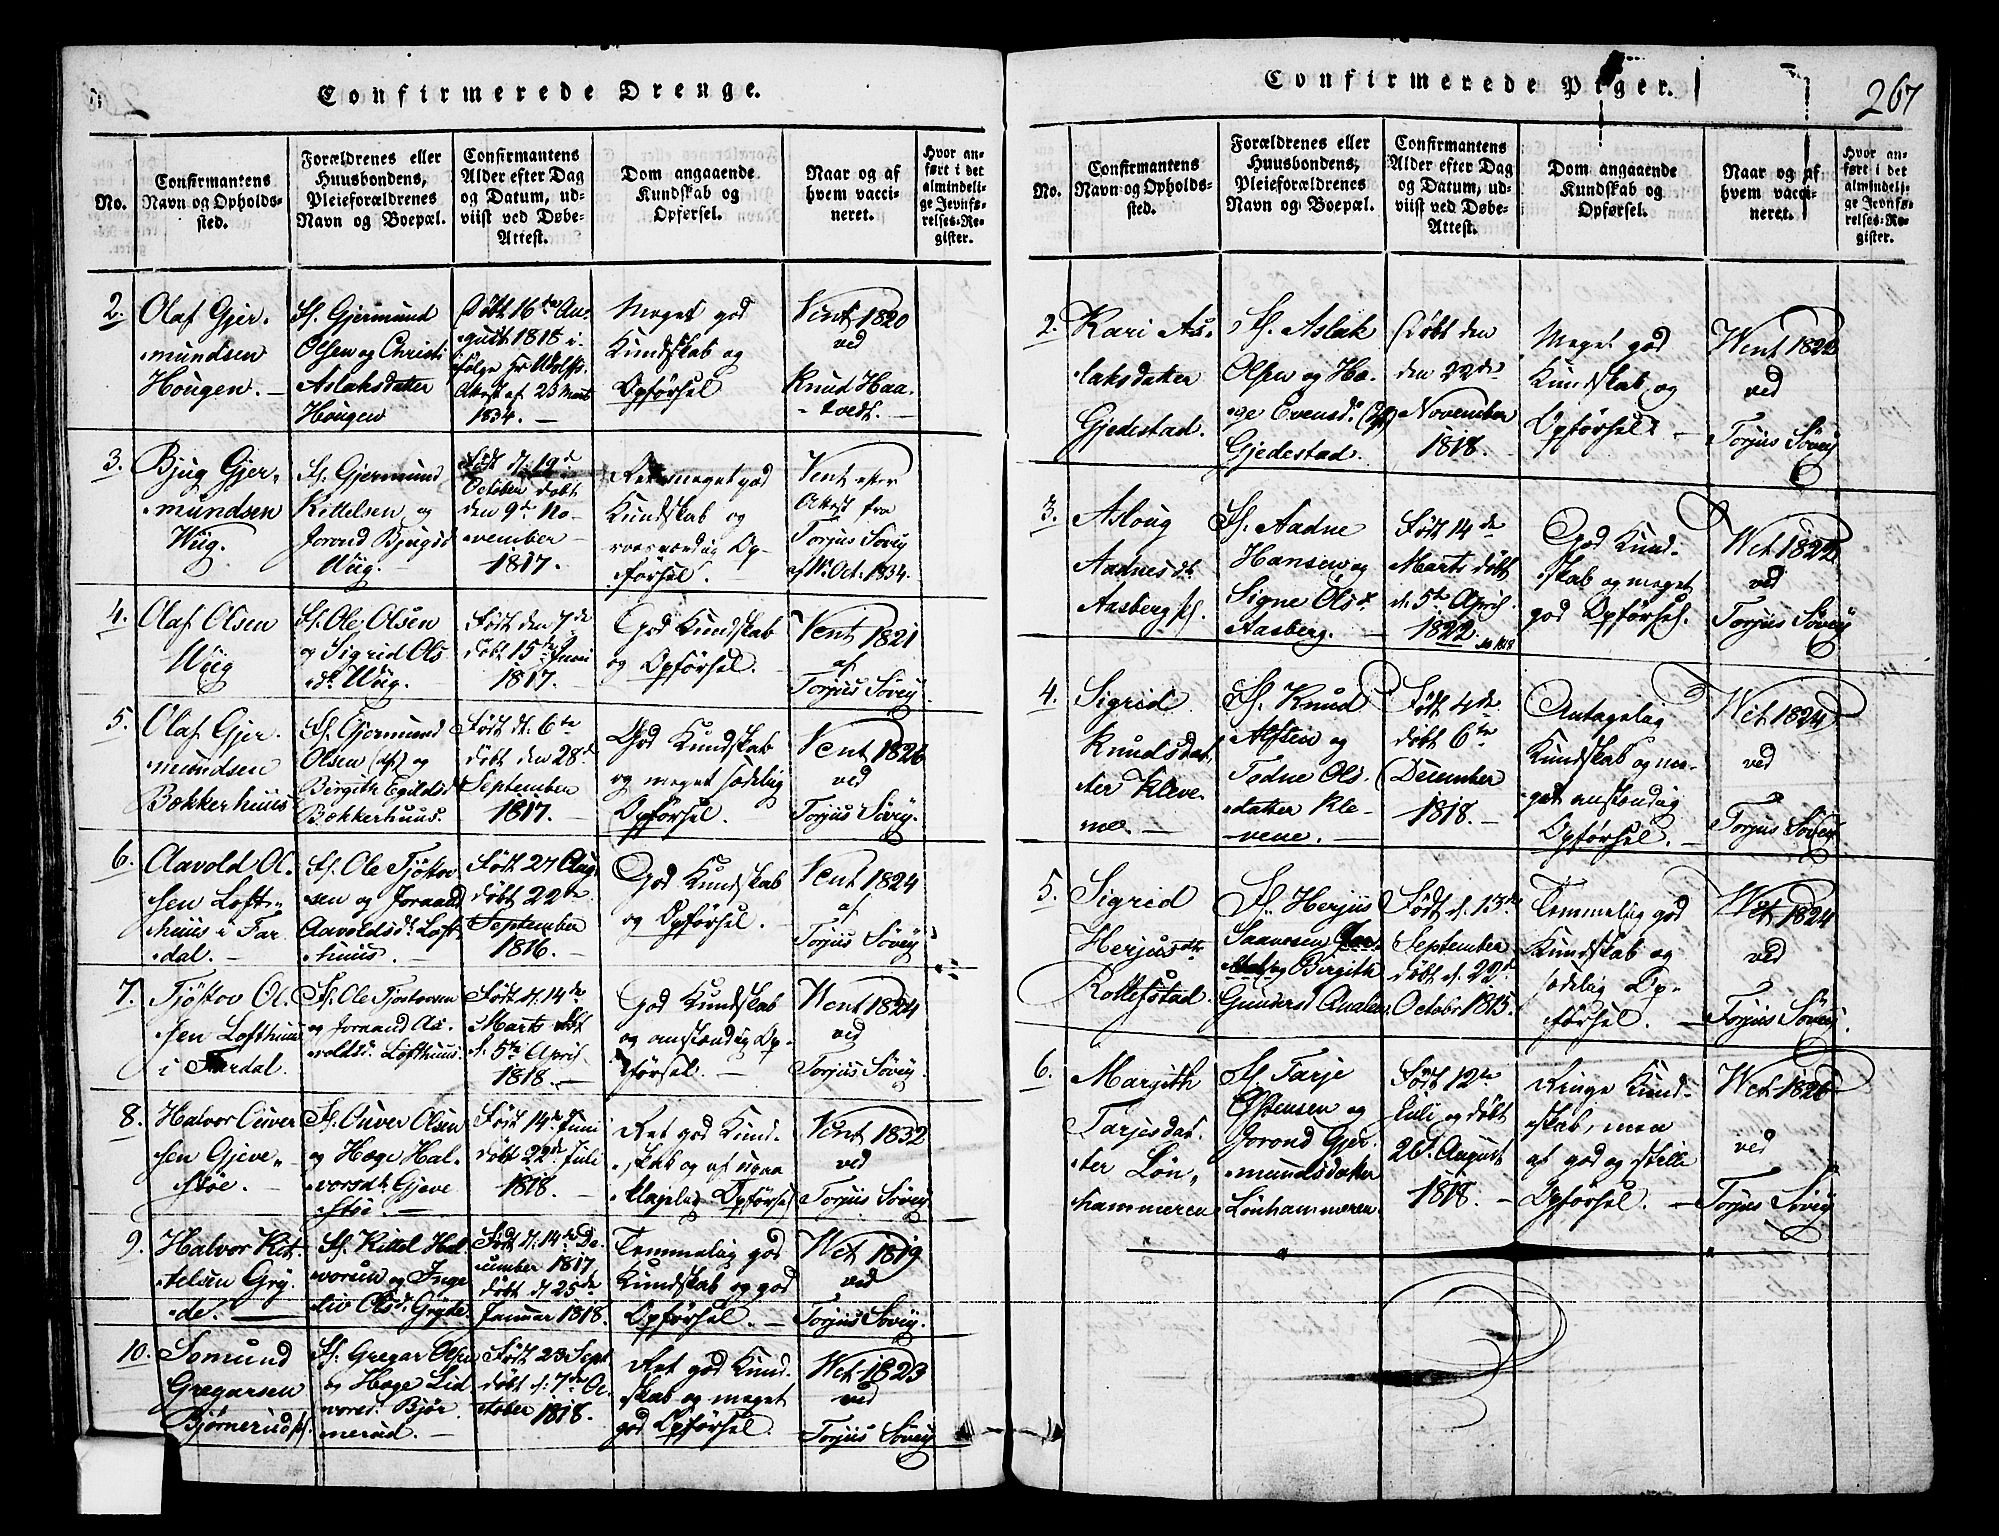 Confirmerede Drenge.
No.
Confirmantens
Navn og Opholds-
sted.
Forældrenes eller
Huusbondens,
Pleieforældrenes
Navn og Boepæl.
Confirmantens
Alder efter Dag
og Datum, ud-
viist ved Døbe-
Attest.
Dom angaaende
Kundskab og
Opførsel.
Naar og af
hvem vacci-
neret.
Hvor an-
ført i det
almindeli-
ge Jevnfø-
relses-Re-
gister.
2.
Olaf Gjer-
mundsen
Hougen. -
F. Gjermund
Olsen og Christi
Aslaksdatter
Hougen
Døbt 16de Au-
gust 1818 i-
følge
Attest af 23 Marts
1834. -
Meget god
Kundskab og
Opførsel
Vent 1820
ved
Knud Haa-
tvedt. -
3.
Bjug Gjer-
mundsen
Wiig.
F. Gjermund
Kittelsen og
Jorond Bjugsd
Wiig. -
Født d. 19de
October døbt
den 9de No-
vember
1817. -
Ret meget god
Kundskab og
roesværdig Op-
førsel.
Vent efter
Attest fra
Torjus Sövey
Oct. 1834.
4.
Olaf Olsen
Wiig
F. Ole Olsen
og Sigrid Ols
dt. Wiig. -
Født den 7de
døbt 15de Juni
1817. -
God Kundskab
og Opførsel. -
Vent 1821
af
Torjus Sövey
5.
Olaf Gjer-
mundsen
Bækkerhuus
F. Gjermund
Olsen og
Birgith Egildsd
Bækkerhuus.
Født d. 6te
døbt den 28de
September
1817. -
God Kundskab
og meget sædelig
Opførsel. -
Vent 1826
ved
Torjus Sövey.
6.
Aavold Ol-
sen Loft-
huus i Far-
dal. -
F. Ole Tjöstov-
sen og Joraand
Aavoldsdt Loft-
huus. -
Født 27 Aug.
døbt 22de
September
1816. -
God Kundskab
og Opførsel. -
Vent 1824
af
Torjus Sövey
7.
Tjöstov Ol-
sen Lofthuus
i Fardal.
F. Ole Tjostovsen
og Joraand Aa-
voldsd. Lofthuus.
Født d. 14de
Marts døbt
d. 5te April
1818. -
God Kundskab
og anstændig Op-
førsel. -
Vent 1824
ved
Torjus Sövey.
8.
Halvor Oliver
sen Gjeve-
støe. -
F. Oliver Olsen
og Hæge Hal-
vorsdt. Gjeve
støe. -
Født 14de Juni
døbt 22de Juli
1818. -
Ret god Kund-
skab og af upaa-
klagelig Opførsel
Vent 1832
ved
Torjus Sövey
9.
Halvor Kit-
telsen Gry-
de. -
F. Kittel Hal-
vorsen og Inge-
liv Olsd. Gryde
Født d. 14de De-
cember 1817.
døbt d. 25de
Januar 1818.
Temmelig god
Kundskab og god
Opførsel. -
Vet 1819
ved
Torjus Sövey.
10.
Somund
Gregarsen
Bjørnerud
F. Gregar Olsen
og Hæge Lid
vorsd. Bjør-
nerud. -
Født 23 Sept
døbt d. 7de Oc-
tober 1818.
Ret god Kund-
skab og meget
god Opførsel.
Vet 1823
ved
Torjus Sövey
Confirmerede Piger.
267
No.
Confirmantens
Navn og Opholds-
sted.
Forældrenes eller
Huusbondens,
Pleieforældrenes
Navn og Boepæl.
Confirmantens
Alder efter Dag
og Datum, ud-
viist ved Døbe-
Attest.
Dom angaaende
Kundskab og
Opførsel.
Naar og af
hvem vacci-
neret.
Hvor an-
ført i det
almindeli-
ge Jevnfø-
relses-Re-
gister.
2.
Kari As-
laksdatter
Gjedestad.
F. Aslak
Olsen og Hæ-
ge Evensd.
Gjedestad.
Døbt den
den 22de
November
1818. -
Meget god
Kundskab og
Opførsel. -
Vent 1822
ved
Torjus Sövey
3.
Asloug
Aadnesdt.
Aasberg
F. Aadne
Hansen og
Signe Olsd.
Aasberg. -
Født 14de
Marts døbt
d. 5te April
1822.
God Kund-
skab og meget
god Opførsel.
Vet 1822
ved
Torjus Sövey
4.
Sigrid
Knudsdat-
ter Kleve-
ne. -
F. Knud
og
Ols-
datter Kle-
vene. -
Født 4de
døbt 6te
December
1818. -
Antagelig
Kundskab og me-
get anstændig
Opførsel. -
Vet 1824
ved
Torjus Sövey
5.
Sigrid
Herjusdtr
F. Herjus
Saavesen
og Birgith
Gundersd
Født d. 13de
September
døbt d. 22de
Octobr 1815.
Temmelig god
Kundskab og
sædelig Op-
førsel. -
Vet 1824
ved
Torjus Sövey.
6.
Margith
Tarjesdat-
ter Løn-
hammeren
F. Tarje
Østensen og
Jorond Gjer-
mundsdatter
Lønhammeren
Født 12te
Juli og døbt
26d. August
1818. -
Ringe Kund-
skab, men
af god og stille
Opførsel. -
Vet 1826
ved
Torjus Sövey